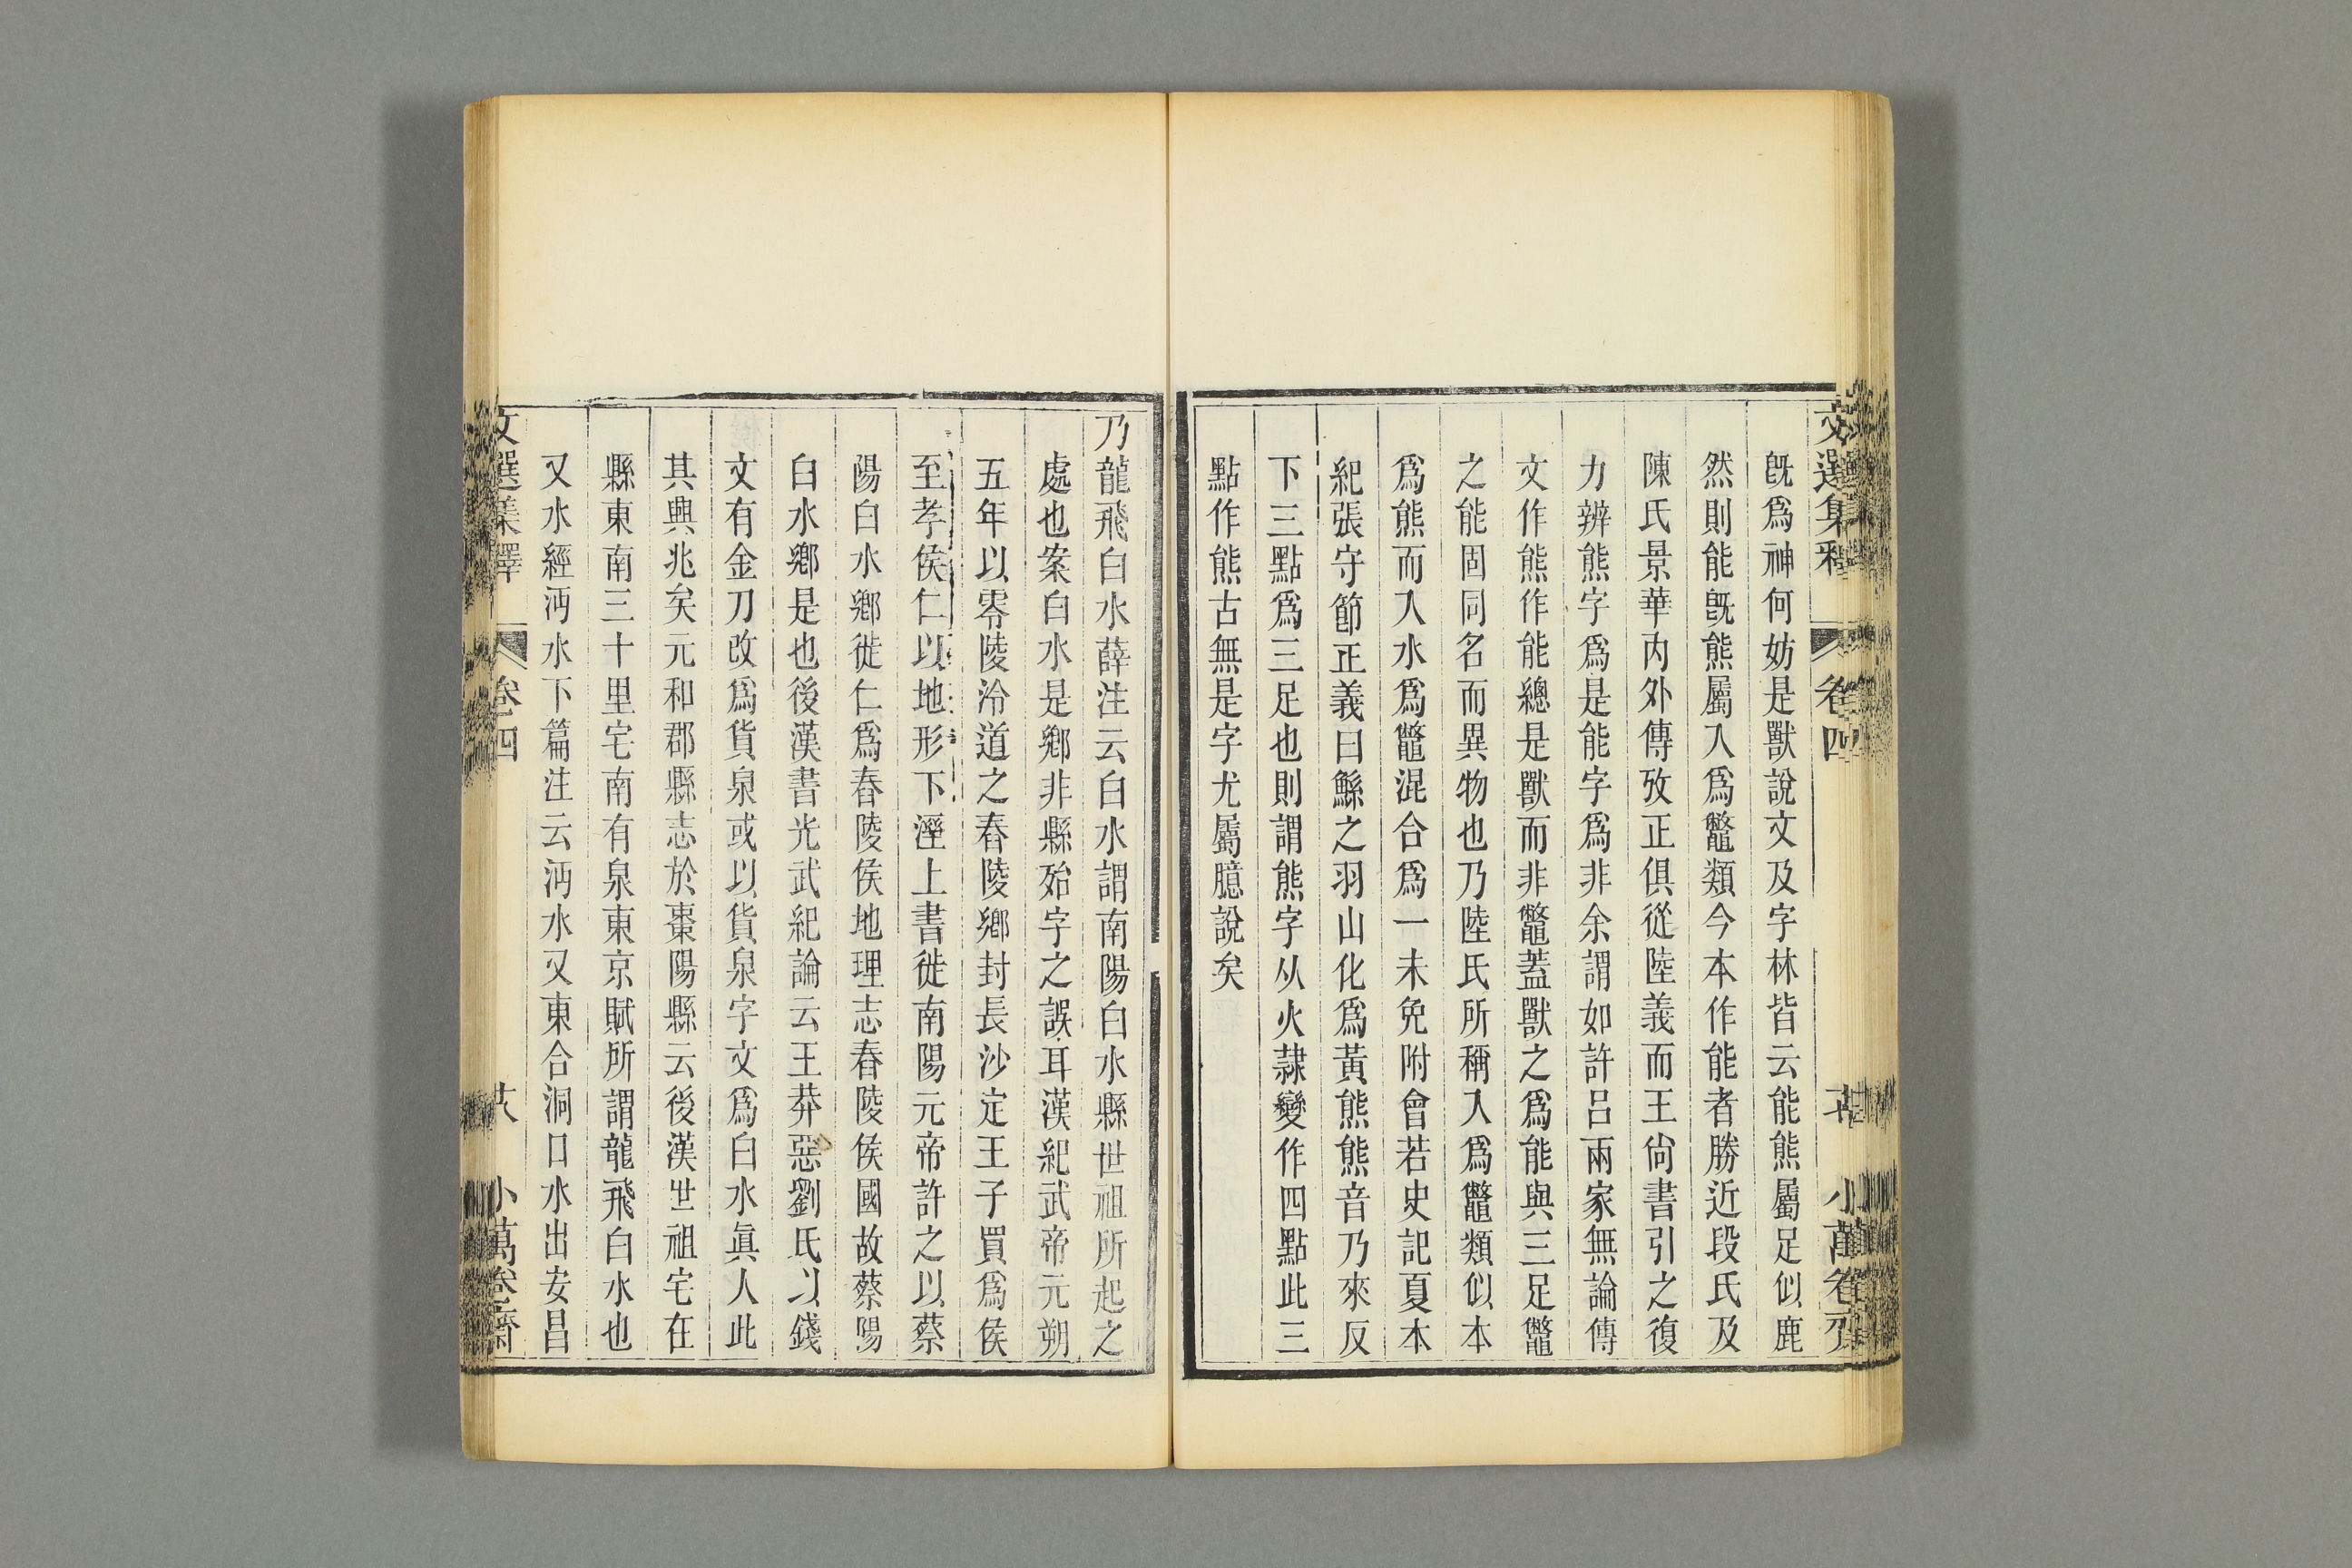 文選集釋 卷四 小萬卷齋
既爲神何妨是獸說文及字林皆云能熊屬足似鹿
然則能既熊屬入爲鼈類今本作能者勝近段氏及
陳氏景華內外傳攷正俱從陸義而王尙書引之復
力辨熊字爲是能字爲非余謂如許呂兩家無論傳
文作熊作能總是獸而非鼈蓋獸之爲能與三足鼈
之能固同名而異物也乃陸氏所稱入爲鼈類似本
爲熊而入水爲鼈混合爲一未免附會若史記夏本
紀張守節正義曰鯀之羽山化爲黃熊熊音乃來反
下三點爲三足也則謂熊字从火隸變作四點此三
點作熊古無是字尤屬臆說矣
乃龍飛白水薛注云白水謂南陽白水縣世祖所起之
處也案白水是鄕非縣殆字之誤耳漢紀武帝元朔
五年以零陵泠道之舂陵鄕封長沙定王子買爲侯
至孝侯仁以地形下溼上書徙南陽元帝許之以蔡
陽白水鄕徙仁爲舂陵侯地理志舂陵侯國故蔡陽
白水鄕是也後漢書光武紀論云王莽惡劉氏以錢
文有金刀改爲貨泉或以貨泉字文爲白水眞人此
其興兆矣元和郡縣志於棗陽縣云後漢世祖宅在
縣東南三十里宅南有泉東京賦所謂龍飛白水也
又水經沔水下篇注云沔水又東合洞口水出安昌
文選集釋 卷四 小萬卷齋